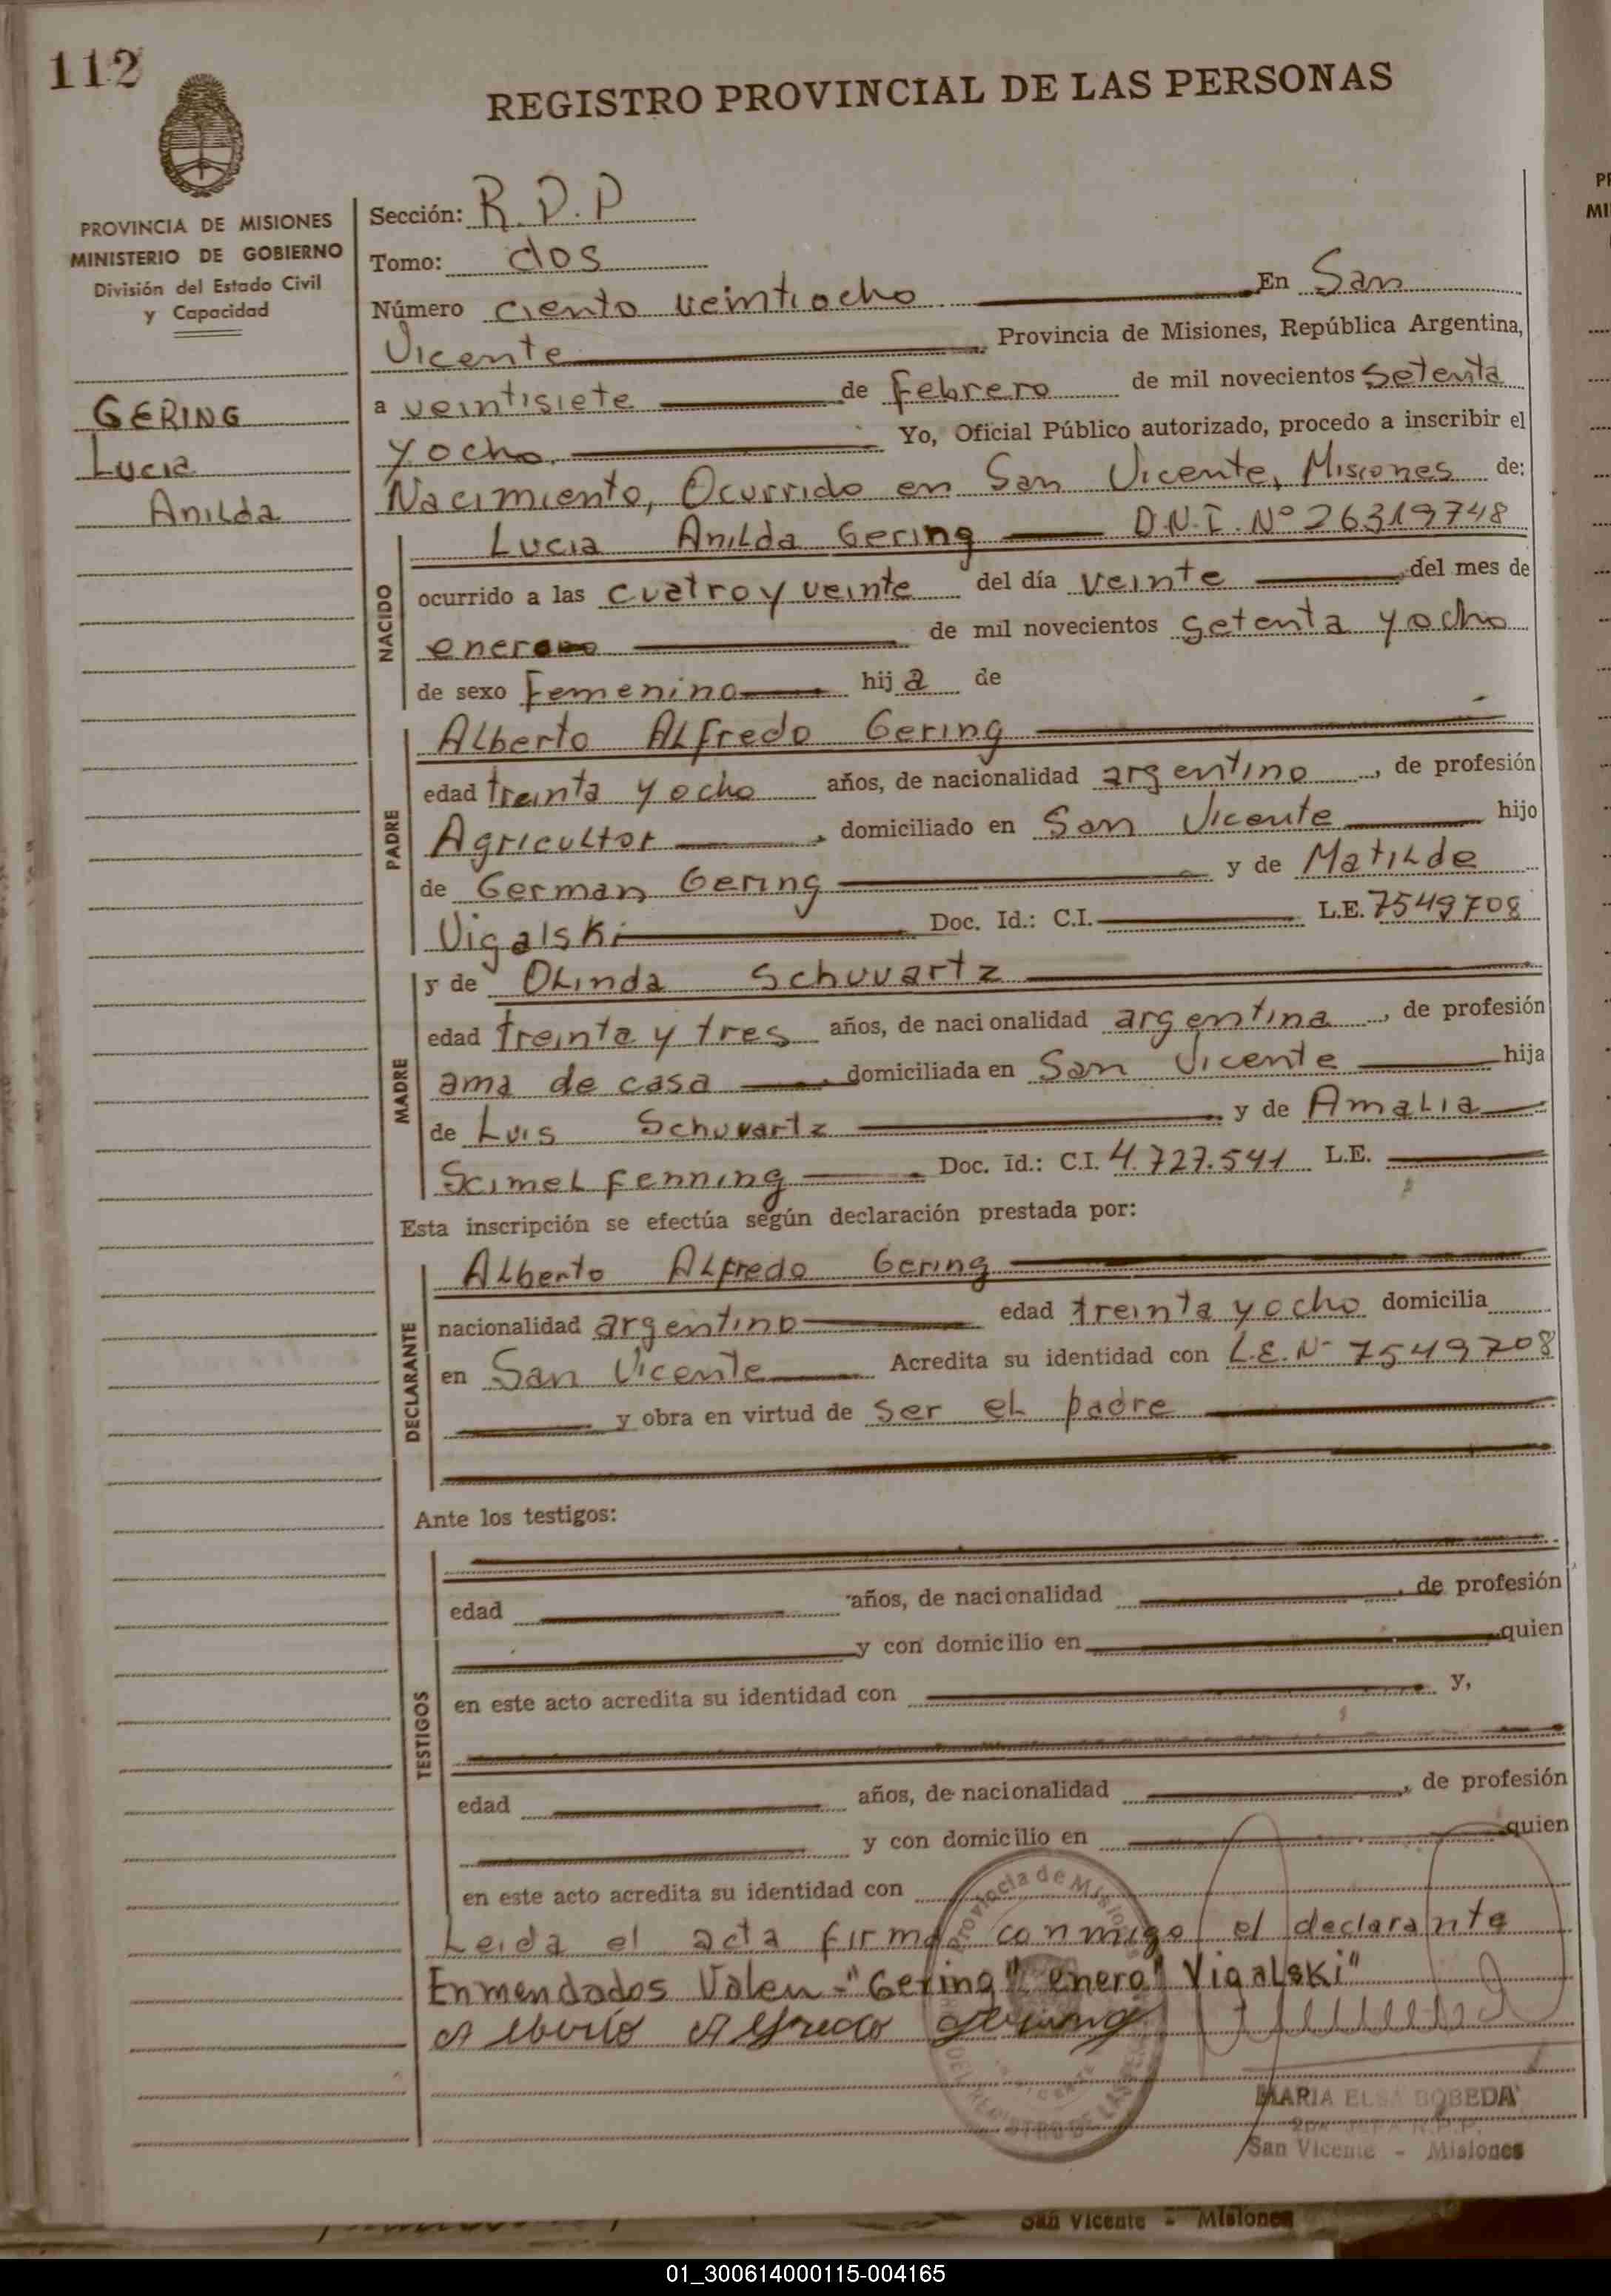 112
REGISTRO PROVINCIAL DE LAS PERSONAS
PROVINCIA DE MISIONES
MINISTERIO DE GOBIERNO
División del Estado Civil
y Capacidad
GERING
Lucia
Anilda
Sección: R.D.P
Tomo: dos
Número ciento veintiocho En San
Vicente Provincia de Misiones, República Argentina,
a veintisiete de Febrero de mil novecientos setenta
y ocho. Yo, Oficial Público autorizado, procedo a inscribir el
Nacimiento, Ocurrido en San Vicente, Misiones de:
NACIDO
Lucia Anilda Gering D.N.I. Nº 26319748
ocurrido a las cuatro y veinte del día veinte del mes de
enero de mil novecientos setenta y ocho
de sexo Femenino hija de
PADRE
Alberto Alfredo Gering
edad treinta y ocho años, de nacionalidad argentino, de profesión
Agricultor, domiciliado en San Vicente hijo
de German Gering y de Matilde
Vigalski Doc. Id.: C.I. L.E. 7549708
MADRE
y de Olinda Schuvartz
edad treinta y tres años, de nacionalidad argentina, de profesión
ama de casa, domiciliada en San Vicente hija
de Luis Schuvartz y de Amalia
Scimelfenning Doc. Id.: C.I. 4.727.541 L.E.
Esta inscripción se efectúa según declaración prestada por:
DECLARANTE
Alberto Alfredo Gering
nacionalidad argentino edad treinta y ocho domicilia
en San Vicente Acredita su identidad con L.E. Nº 7549708
y obra en virtud de ser el padre
Ante los testigos:
TESTIGOS
edad años, de nacionalidad , de profesión
y con domicilio en quien
en este acto acredita su identidad con y,
edad años, de nacionalidad , de profesión
y con domicilio en quien
en este acto acredita su identidad con
Leida el acta firma conmigo el declarante
Enmendados Valen-"Gering" enero" Vigalski"
Alberto Alfredo Gering
Provincia de Misiones
MARIA ELSA BOBEDA
San Vicente - Misiones
San Vicente - Misiones
01_300614000115-004165